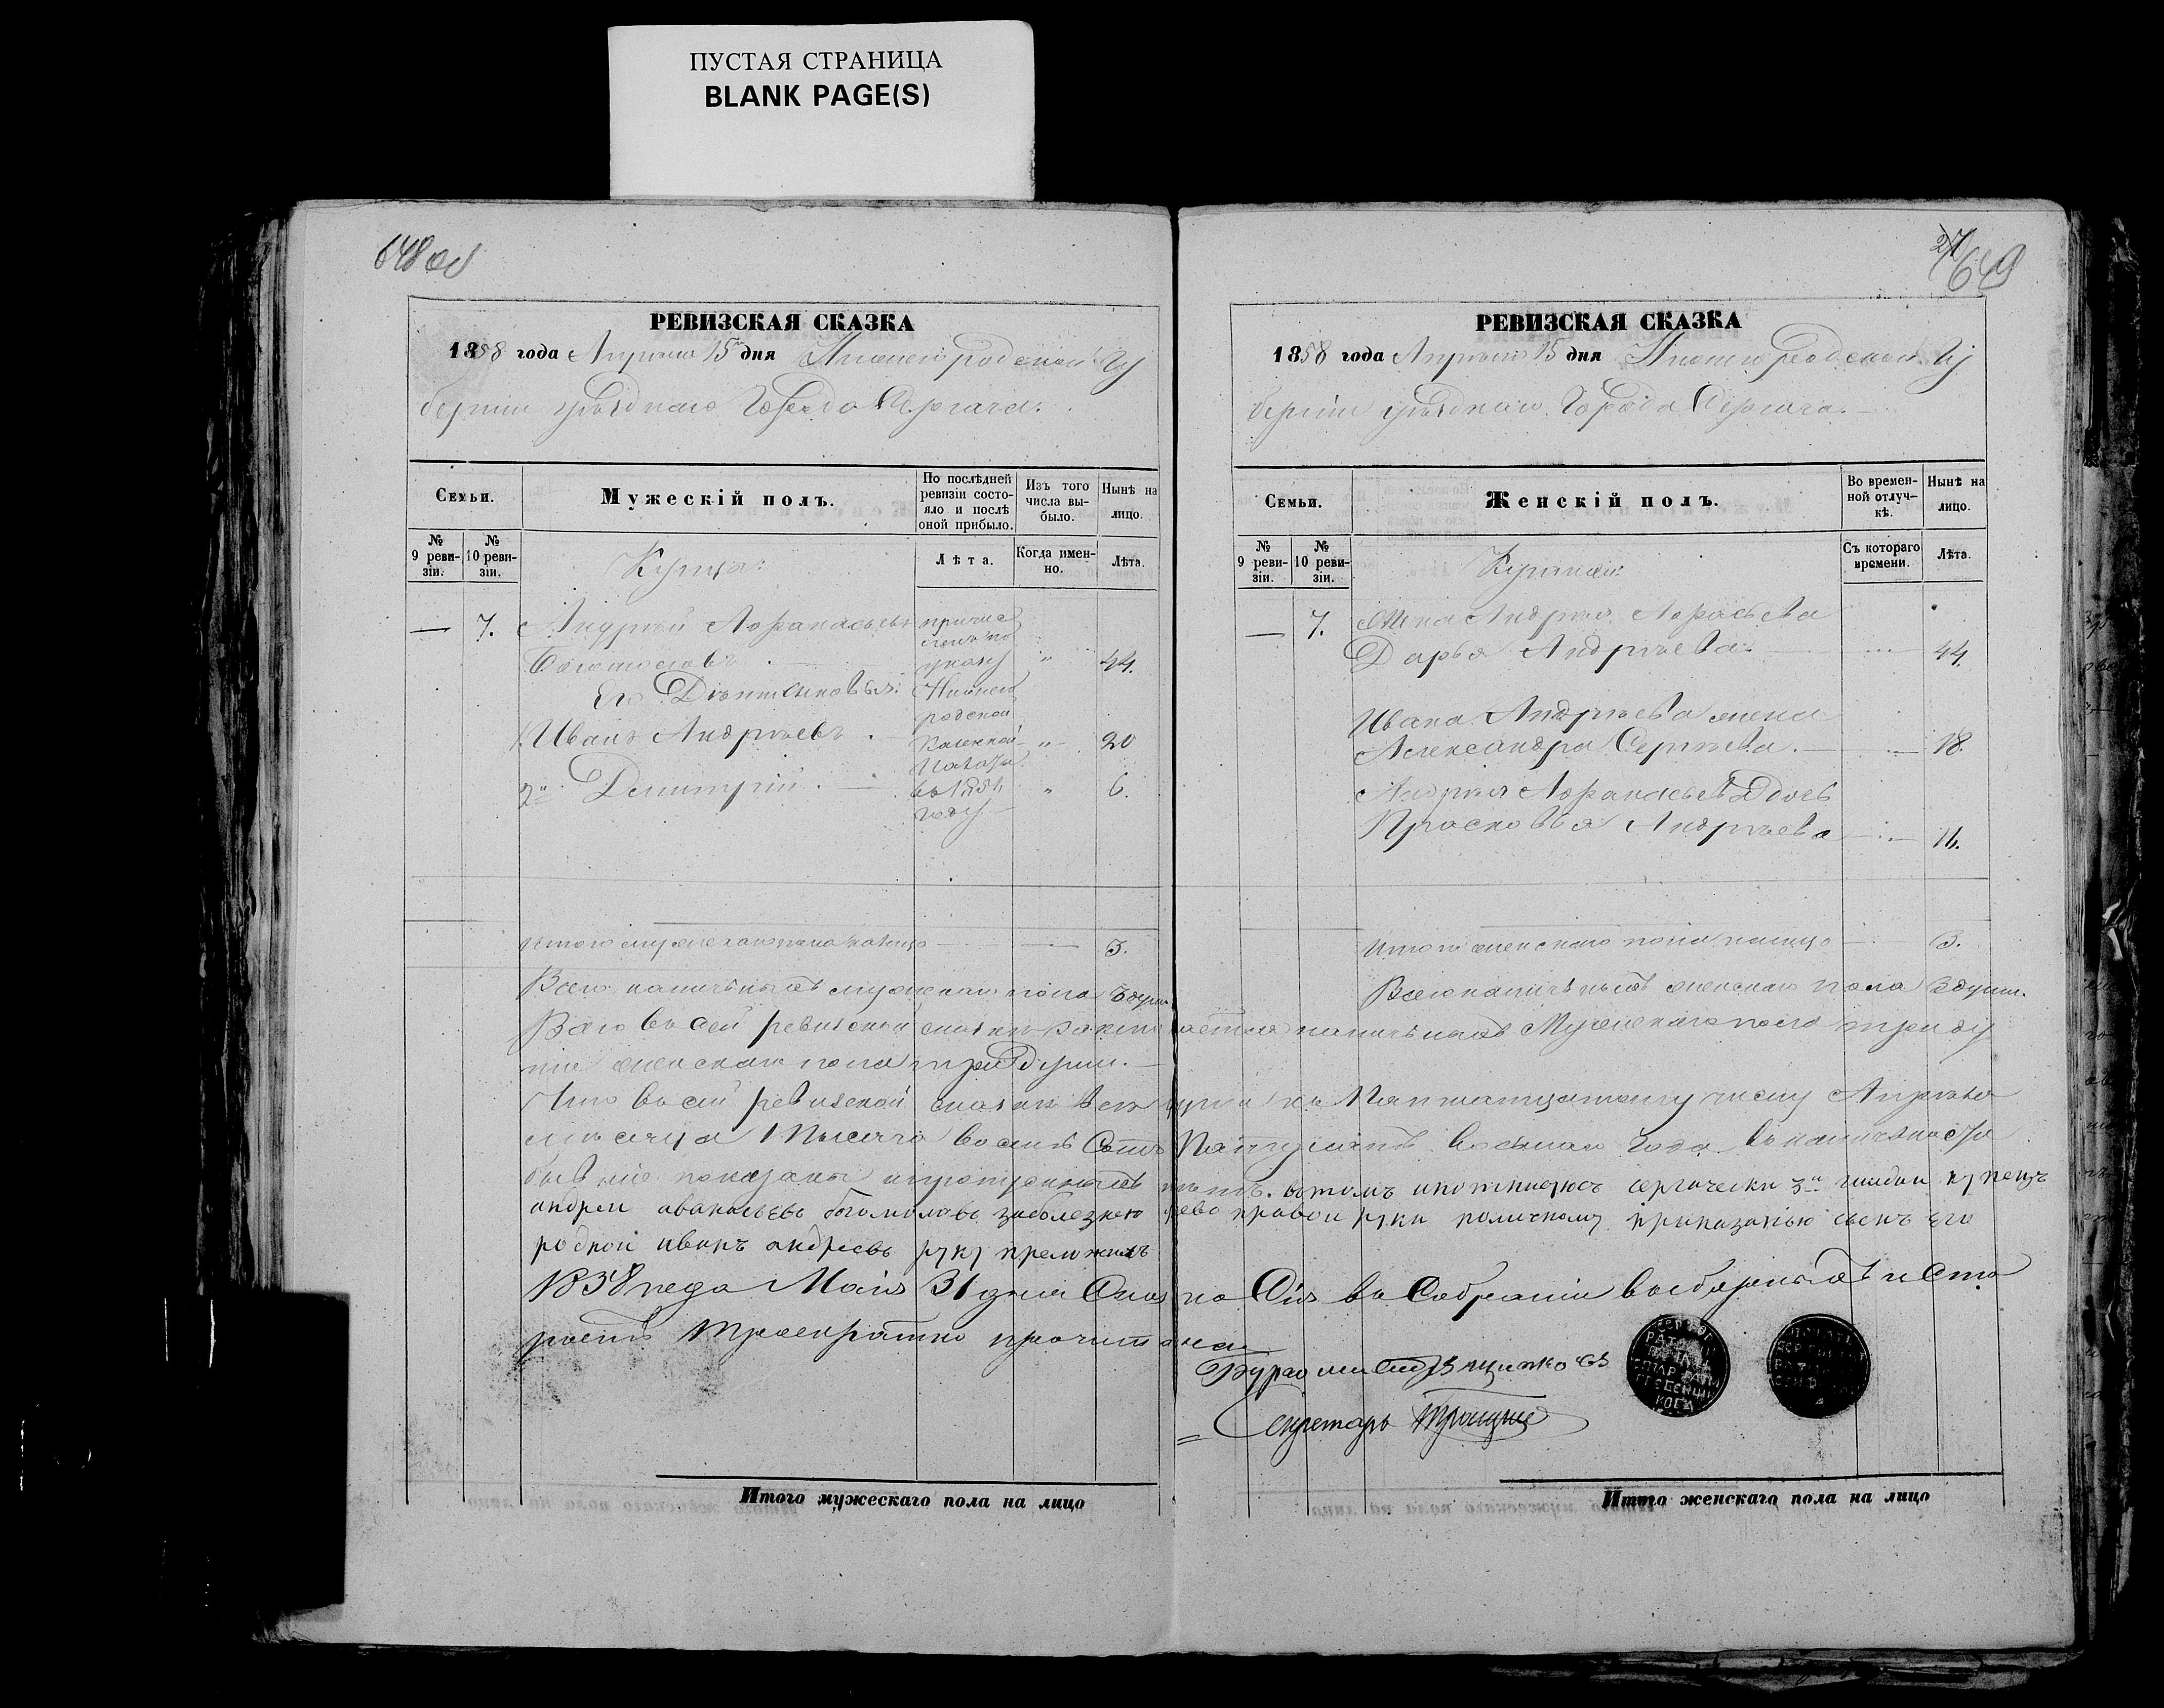 ПУСТАЯ СТРАНИЦА
BLANK PAGE(S)
648 об
РЕВИЗСКАЯ СКАЗКА
1858 года Апреля 15 дня Нижегородской Гу
берніи уѣзднаго Города Сергача.
Семьи.
Мужескій полъ.
По послѣдней ревизіи состояло и послѣ оной прибыло.
Изъ того числа выбыло.
Нынѣ на лицо.
№ 9 ревизіи.
№ 10 ревизіи.
Купцы:
Лѣта.
Когда именно.
Лѣта.
— 7. Андрей Афанасьевъ
Богомоловъ 44.
Его Дѣти Сыновья:
1. Иванъ Андреевъ 20
2й Дмитрій 6.
причислены по
указу
Нижего
родской
Казенной
Палаты
въ 185
году
Итого мужескаго пола на лицо 3.
Всего наличныхъ мужскаго пола 3 души
27
649
РЕВИЗСКАЯ СКАЗКА
1858 года Апреля 15 дня Нижегородской Гу
берніи уѣзднаго Города Сергача.
Семьи.
Женскій полъ.
Во временной отлучкѣ.
Нынѣ на лицо.
№ 9 ревизіи.
№ 10 ревизіи.
Съ котораго времени.
Лѣта.
— 7. Жена Андрея Афанасьева
Дарья Андреева 44
Ивана Андреева жена
Александра Сергѣева. 18.
Андрея Афанасьева Дочь
Прасковья Андреева
Итого женскаго пола налицо 3.
Всего наличныхъ женскаго пола 3 души.
Всего въ сей ревизской сказкѣ наличныхъ Мужескаго пола три ду
ши женскаго пола три Души.
Что въ сей ревизской сказкѣ всѣ души къ Пятнатцатому числу Апреля
месяца Тысяча восемь Сотъ Пятдесятъ восьмаго года въ наличности
бывшіе показаны и пропущенныхъ нетъ. въ томъ и подписуюсь сергачески 3й гилдіи купецъ
андреи аванасьевъ богомоловъ за болезнею ево правои руки по личному приказанію сынъ его
родной иванъ андреевъ руку преложилъ
1858 года Маія 31 дня Сказка Сія въ Собраніи выборныхъ и Ста
ростъ троекратно прочитана
Секретарь Троицкій
Итого мужескаго пола на лицо
Итого женскаго пола на лицо